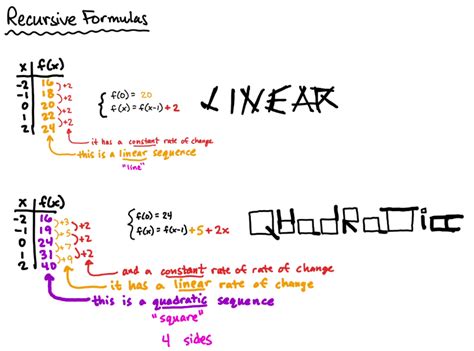 Recursive Formulas
x f(x)
-2 16
-1 18
0 20
1 22
2 24
)+2
)+2
)+2
)+2
{ f(0) = 20
f(x) = f(x-1) + 2
LINEAR
it has a constant rate of change
this is a linear sequence
"line"
x f(x)
-2 16
-1 19
0 24
1 31
2 40
)+3
)+5
)+7
)+9
)+2
)+2
)+2
{ f(0) = 24
f(x) = f(x-1) + 5 + 2x
QUadRaTic
and a constant rate of rate of change
it has a linear rate of change
this is a quadratic sequence
"square"
4 sides